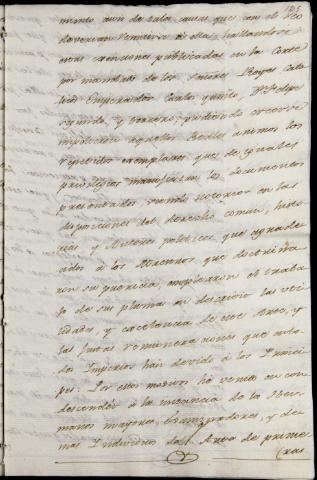 105
miento aun de tales causas que con el Reo
deverian remitirse à ella, hallandose
otras esenciones publicadas en la Corte
por mandado de los Señores Reyes Cato
licos Emperador Carlos quinto, Dn Felipe
segundo, y tercero, pudiendo
impulsion aquellos Reales animos los
repetidos exemplares que de iguales
privilegios manifiestan los documentos
presentados, siendo notorios en las
disposiciones del derecho comun, histo
rias y Autores politicos que agrade
cidos à los Maestros que doctrina
ron su puericia, emplearon el traba
jo de sus plumas en descrivir las uti
lidades, y excelencia de este Arte, y
las justas remuneraciones que en to
dos Imperios han devido à los Princi
pes. Por estos motivos he venido en con
descender à la instancia de los Her
manos mayores, Examinadores, y de
mas Individuos del Arte de prime
ras